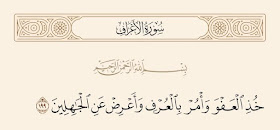 سُورَةُ الأَعْرَافِ
بِسْمِ اللَّهِ الرَّحْمَٰنِ الرَّحِيمِ
خُذِ الْعَفْوَ وَأْمُرْ بِالْعُرْفِ وَأَعْرِضْ عَنِ الْجَاهِلِينَ ١٩٩